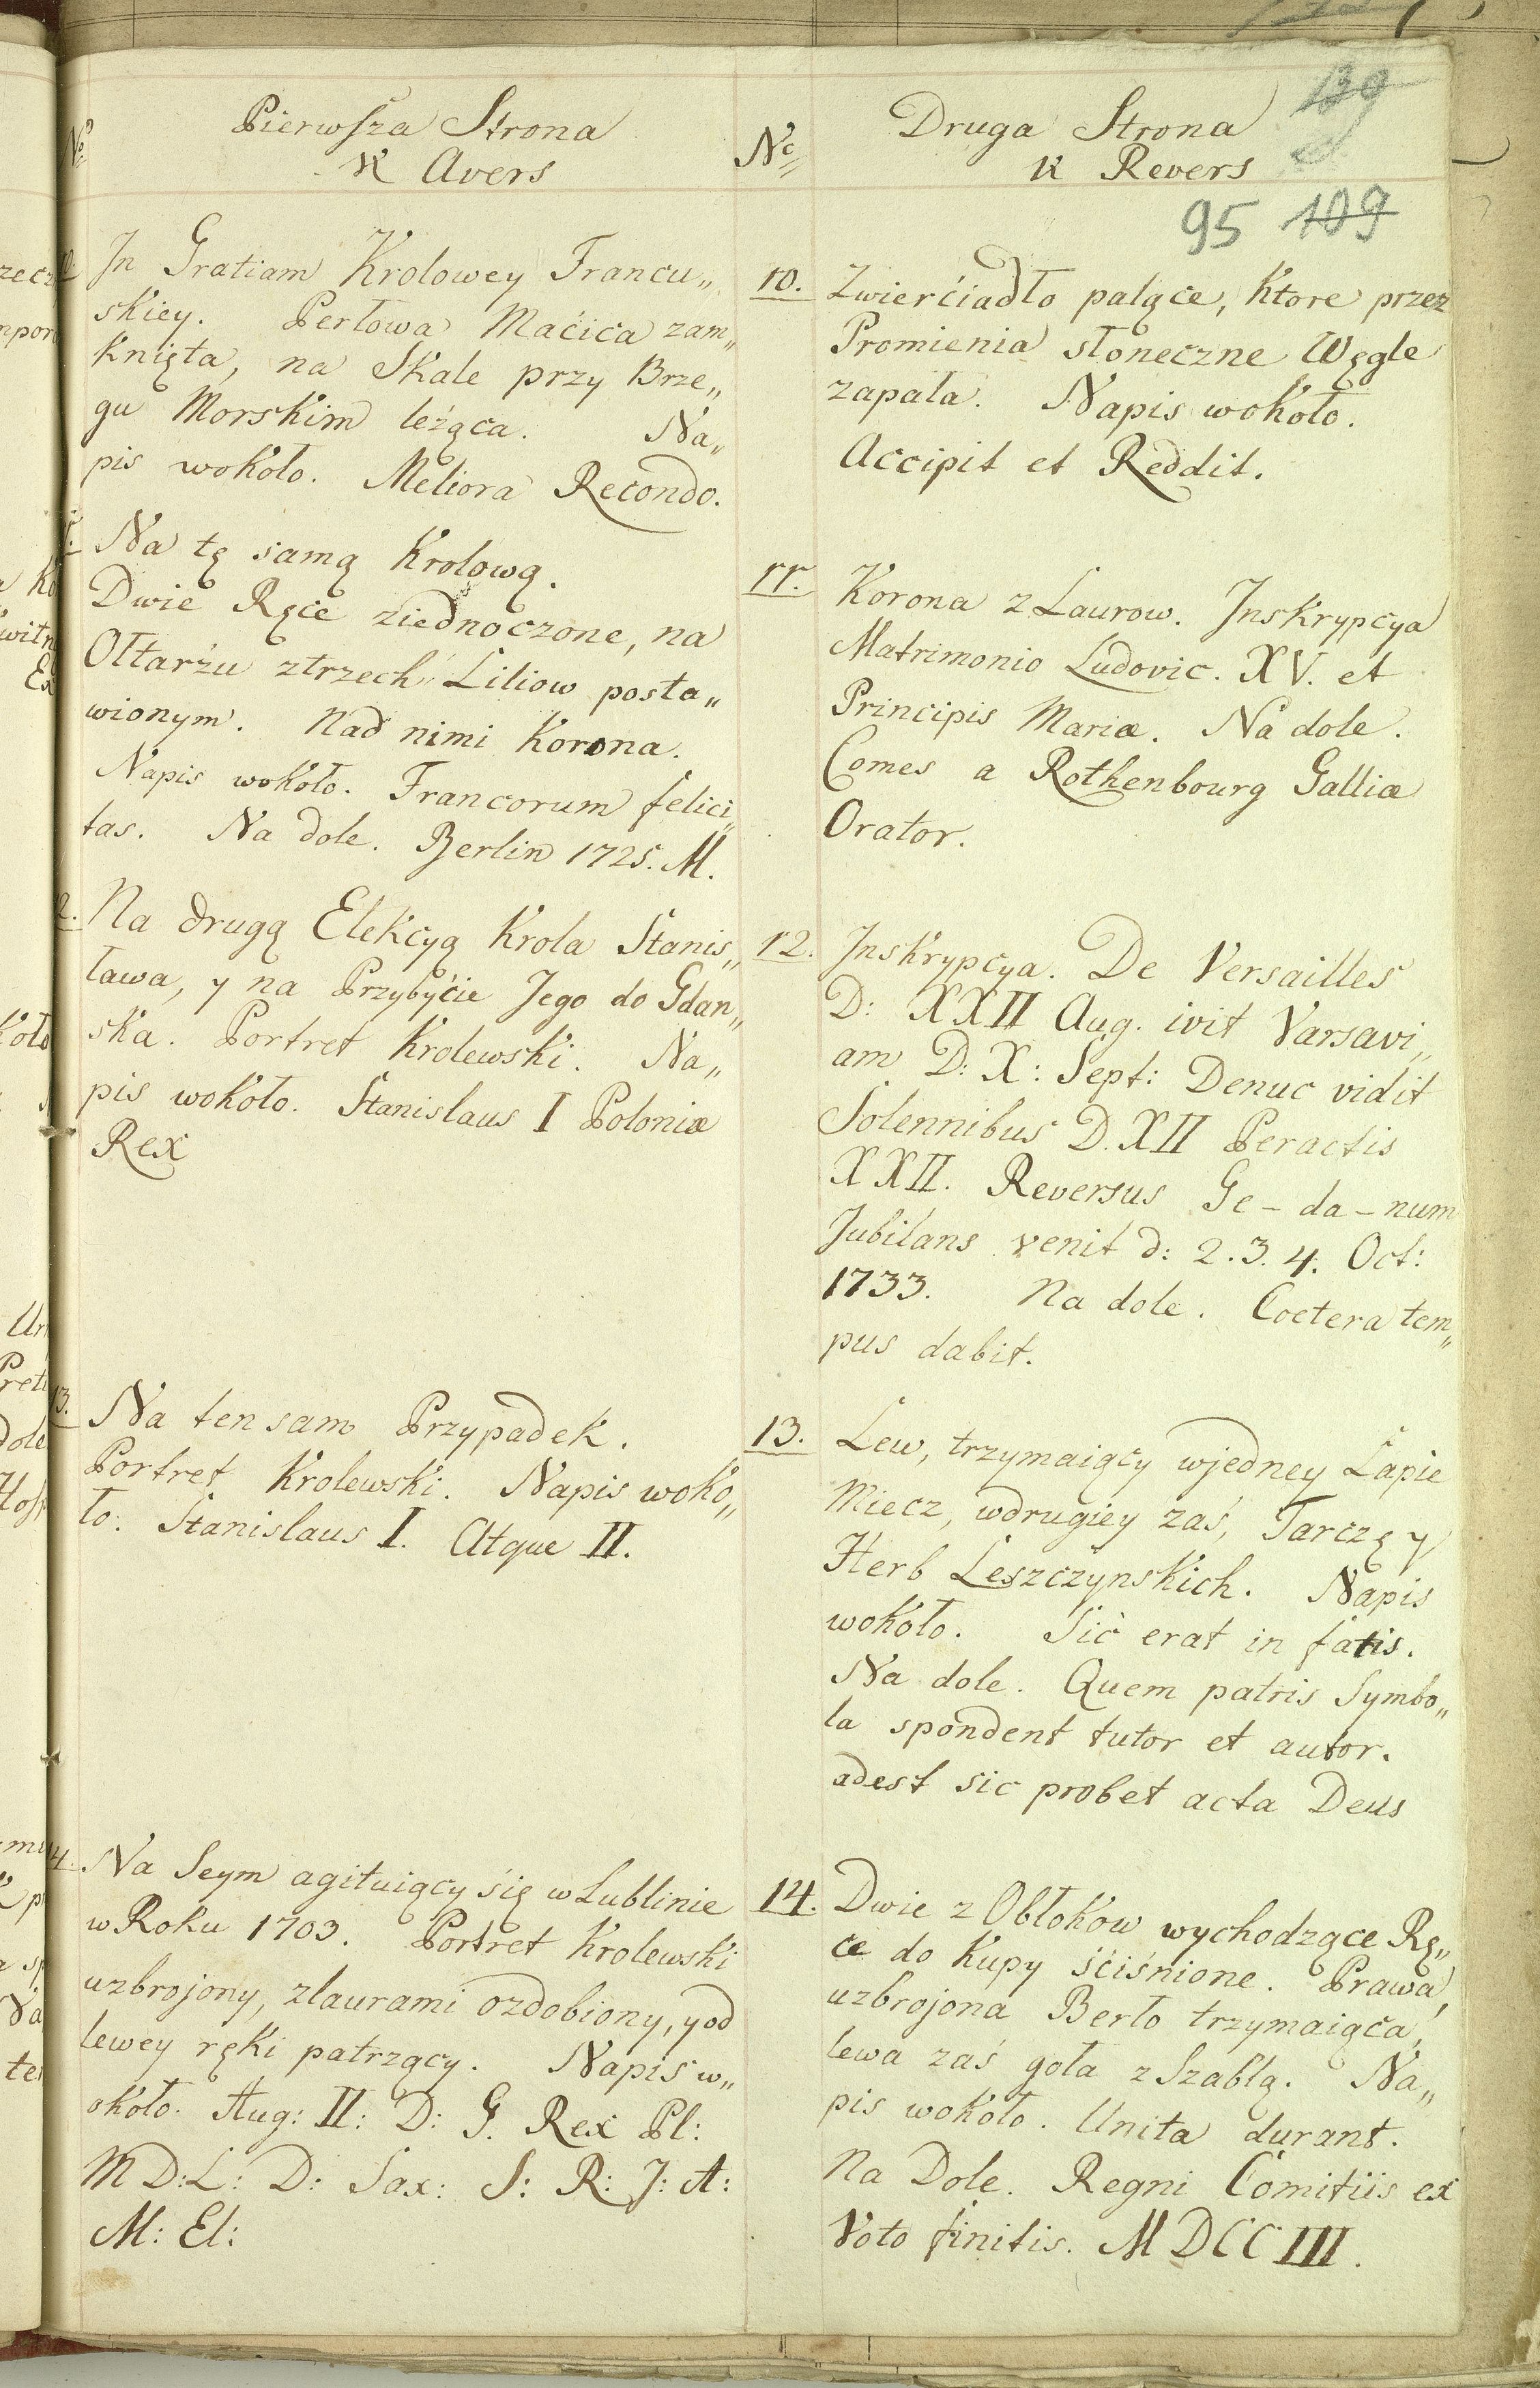 Nº
Pierwsza Strona
K Avers
In Gratiam Krolowey Francu„
skiey. Perłowa Macica zam„
knięta, na Skale przy Brze„
gu Morskim leżąca. Na„
pis wokoło. Meliora Recondo.
Na tę samą Krolową.
Dwie Ręce ziednoczone, na
Ołtarzu z trzech Liliow posta„
wionym. Nad nimi Korona.
Napis wokoło. Francorum felici„
tas. Na dole. Berlin 1725. M.
Na drugą Elekcyą Krola Stanis„
ława, y na Przybyćie Jego do Gdan„
ska. Portret Krolewski. Na„
pis wokoło. Stanislaus I Poloniæ
Rex
13. Na ten sam Przypadek.
Portret Krolewski. Napis woko„
ło. Stanislaus I. Atque II.
Na Seym agituiący się w Lublinie
w Roku 1703. Portret Krolewski
uzbrojony, z laurami ozdobiony, y od
lewey ręki patrzący. Napis w„
około. Aug: II: D: G. Rex Pl:
M D: L: D: Sax: S: R: J: A:
M: El:
Nº
Druga Strona
K Revers
139
95 109
10. Zwierćiadło palące, Ktore przez
Promienia słoneczne Węgle
zapala. Napis wokoło.
Accipit et Reddit.
11. Korona z Laurow. Inskrypcya
Matrimonio Ludovic. XV. et
Principis Mariæ. Na dole.
Comes a Rothenbourg Galliæ
Orator.
12. Inskrypcya. De Versailles
D: XXII Aug. ivit Varsavi„
am D: X: Sept: Denuc vidit
Solennibus D. XII Peractis
XXII. Reversus Ge-da-num
Jubilans venit d: 2. 3. 4. Oct:
1733. Na dole. Coetera tem„
pus dabit.
13. Lew, trzymaiący w jedney Łapie
Miecz, w drugiey zaś, Tarczę y
Herb Leszczynskich. Napis
wokoło. Sic erat in fatis.
Na dole. Quem patris Symbo„
la spondent tutor et autor.
adest sic probet acta Deus
14. Dwie z Obłokow wychodzące Rę„
ce do Kupy śćiśnione. Prawa,
uzbrojona Berło trzymaiąca,
lewa zaś goła z Szablą. Na„
pis wokoło. Unita durant.
Na Dole. Regni Comitiis ex
Voto finitis. MDCCIII.